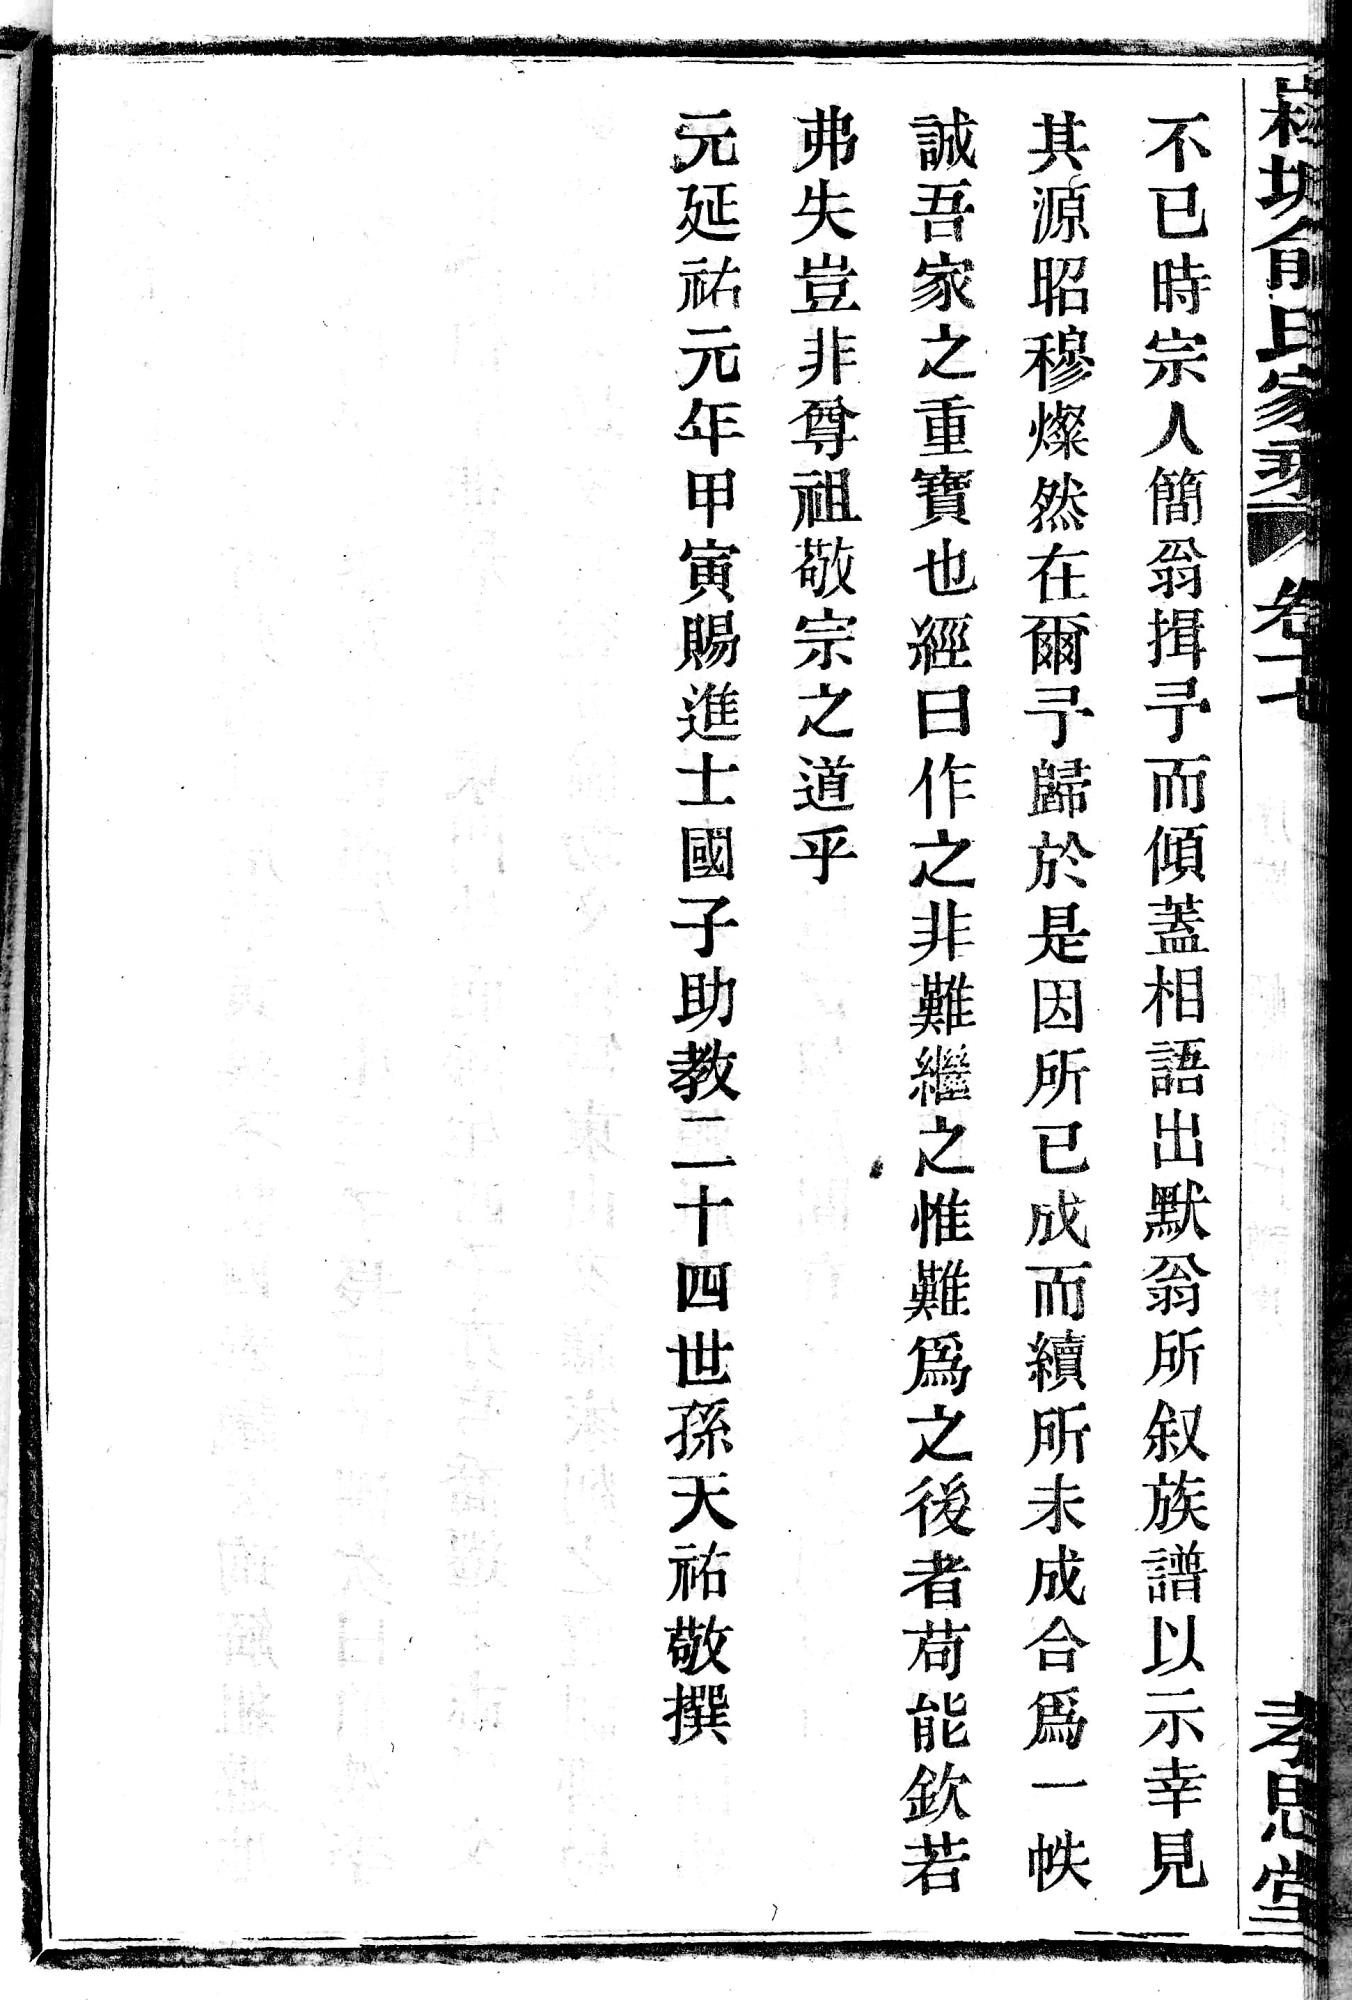 俞氏家乘
卷十七
孝思堂
不已時宗人簡翁揖予而傾蓋相語出默翁所叙族譜以示幸見
其源昭穆燦然在爾予歸於是因所已成而續所未成合爲一帙
誠吾家之重寶也經曰作之非難繼之惟難爲之後者苟能欽若
弗失豈非尊祖敬宗之道乎
元延祐元年甲寅賜進士國子助教二十四世孫天祐敬撰